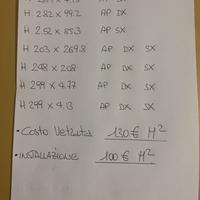 H 282 x 99.2 AP DX
H 2.52 x 85.3 AP SX
H 203 x 269.8 AP DX SX
H 248 x 208 AP DX SX
H 299 x 4.77 AP DX SX
H 299 x 4.13 AP DX SX
• COSTO VETRATA 130 € M²
• INSTALLAZIONE 100 € M²